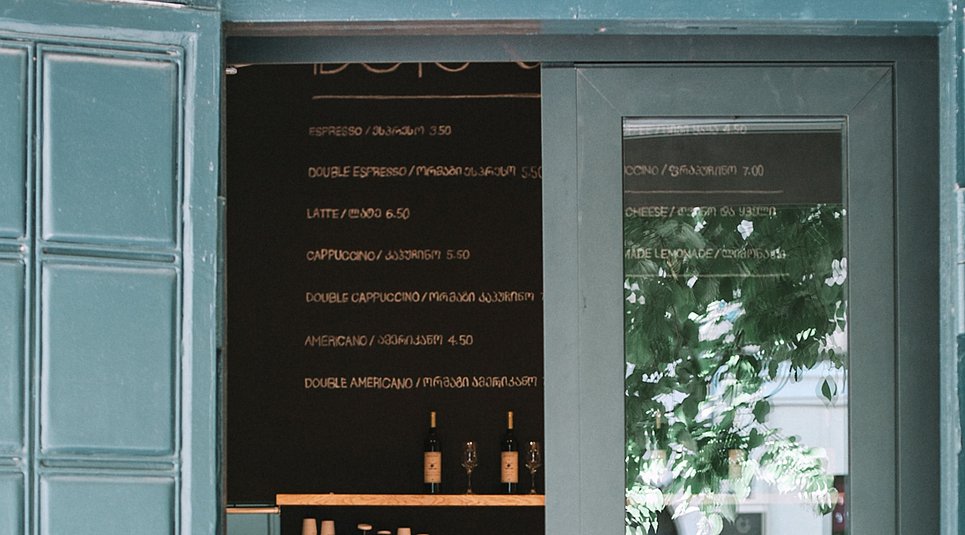 ESPRESSO / ესპრესო 3.50
DOUBLE ESPRESSO / ორმაგი ესპრესო 5.50
LATTE / ლატე 6.50
CAPPUCCINO / კაპუჩინო 5.50
DOUBLE CAPPUCCINO / ორმაგი კაპუჩინო
AMERICANO / ამერიკანო 4.50
DOUBLE AMERICANO / ორმაგი ამერიკანო
4.50
CCINO / ფრაპუჩინო 7.00
CHEESE / ღვინო და ყველი
MADE LEMONADE / ლიმონათი